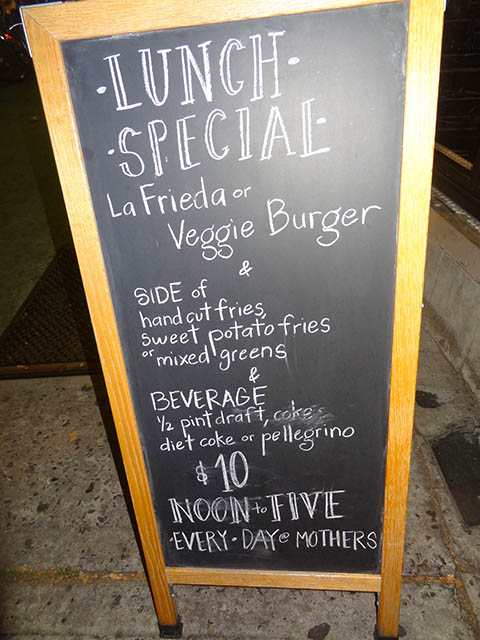 ·LUNCH·
·SPECIAL·
La Frieda or
Veggie Burger
&
SIDE of
hand cut fries,
sweet potato fries
or mixed greens
&
BEVERAGE
1/2 pint draft, coke,
diet coke or pellegrino
$10
NOON to FIVE
·EVERY·DAY@ MOTHERS